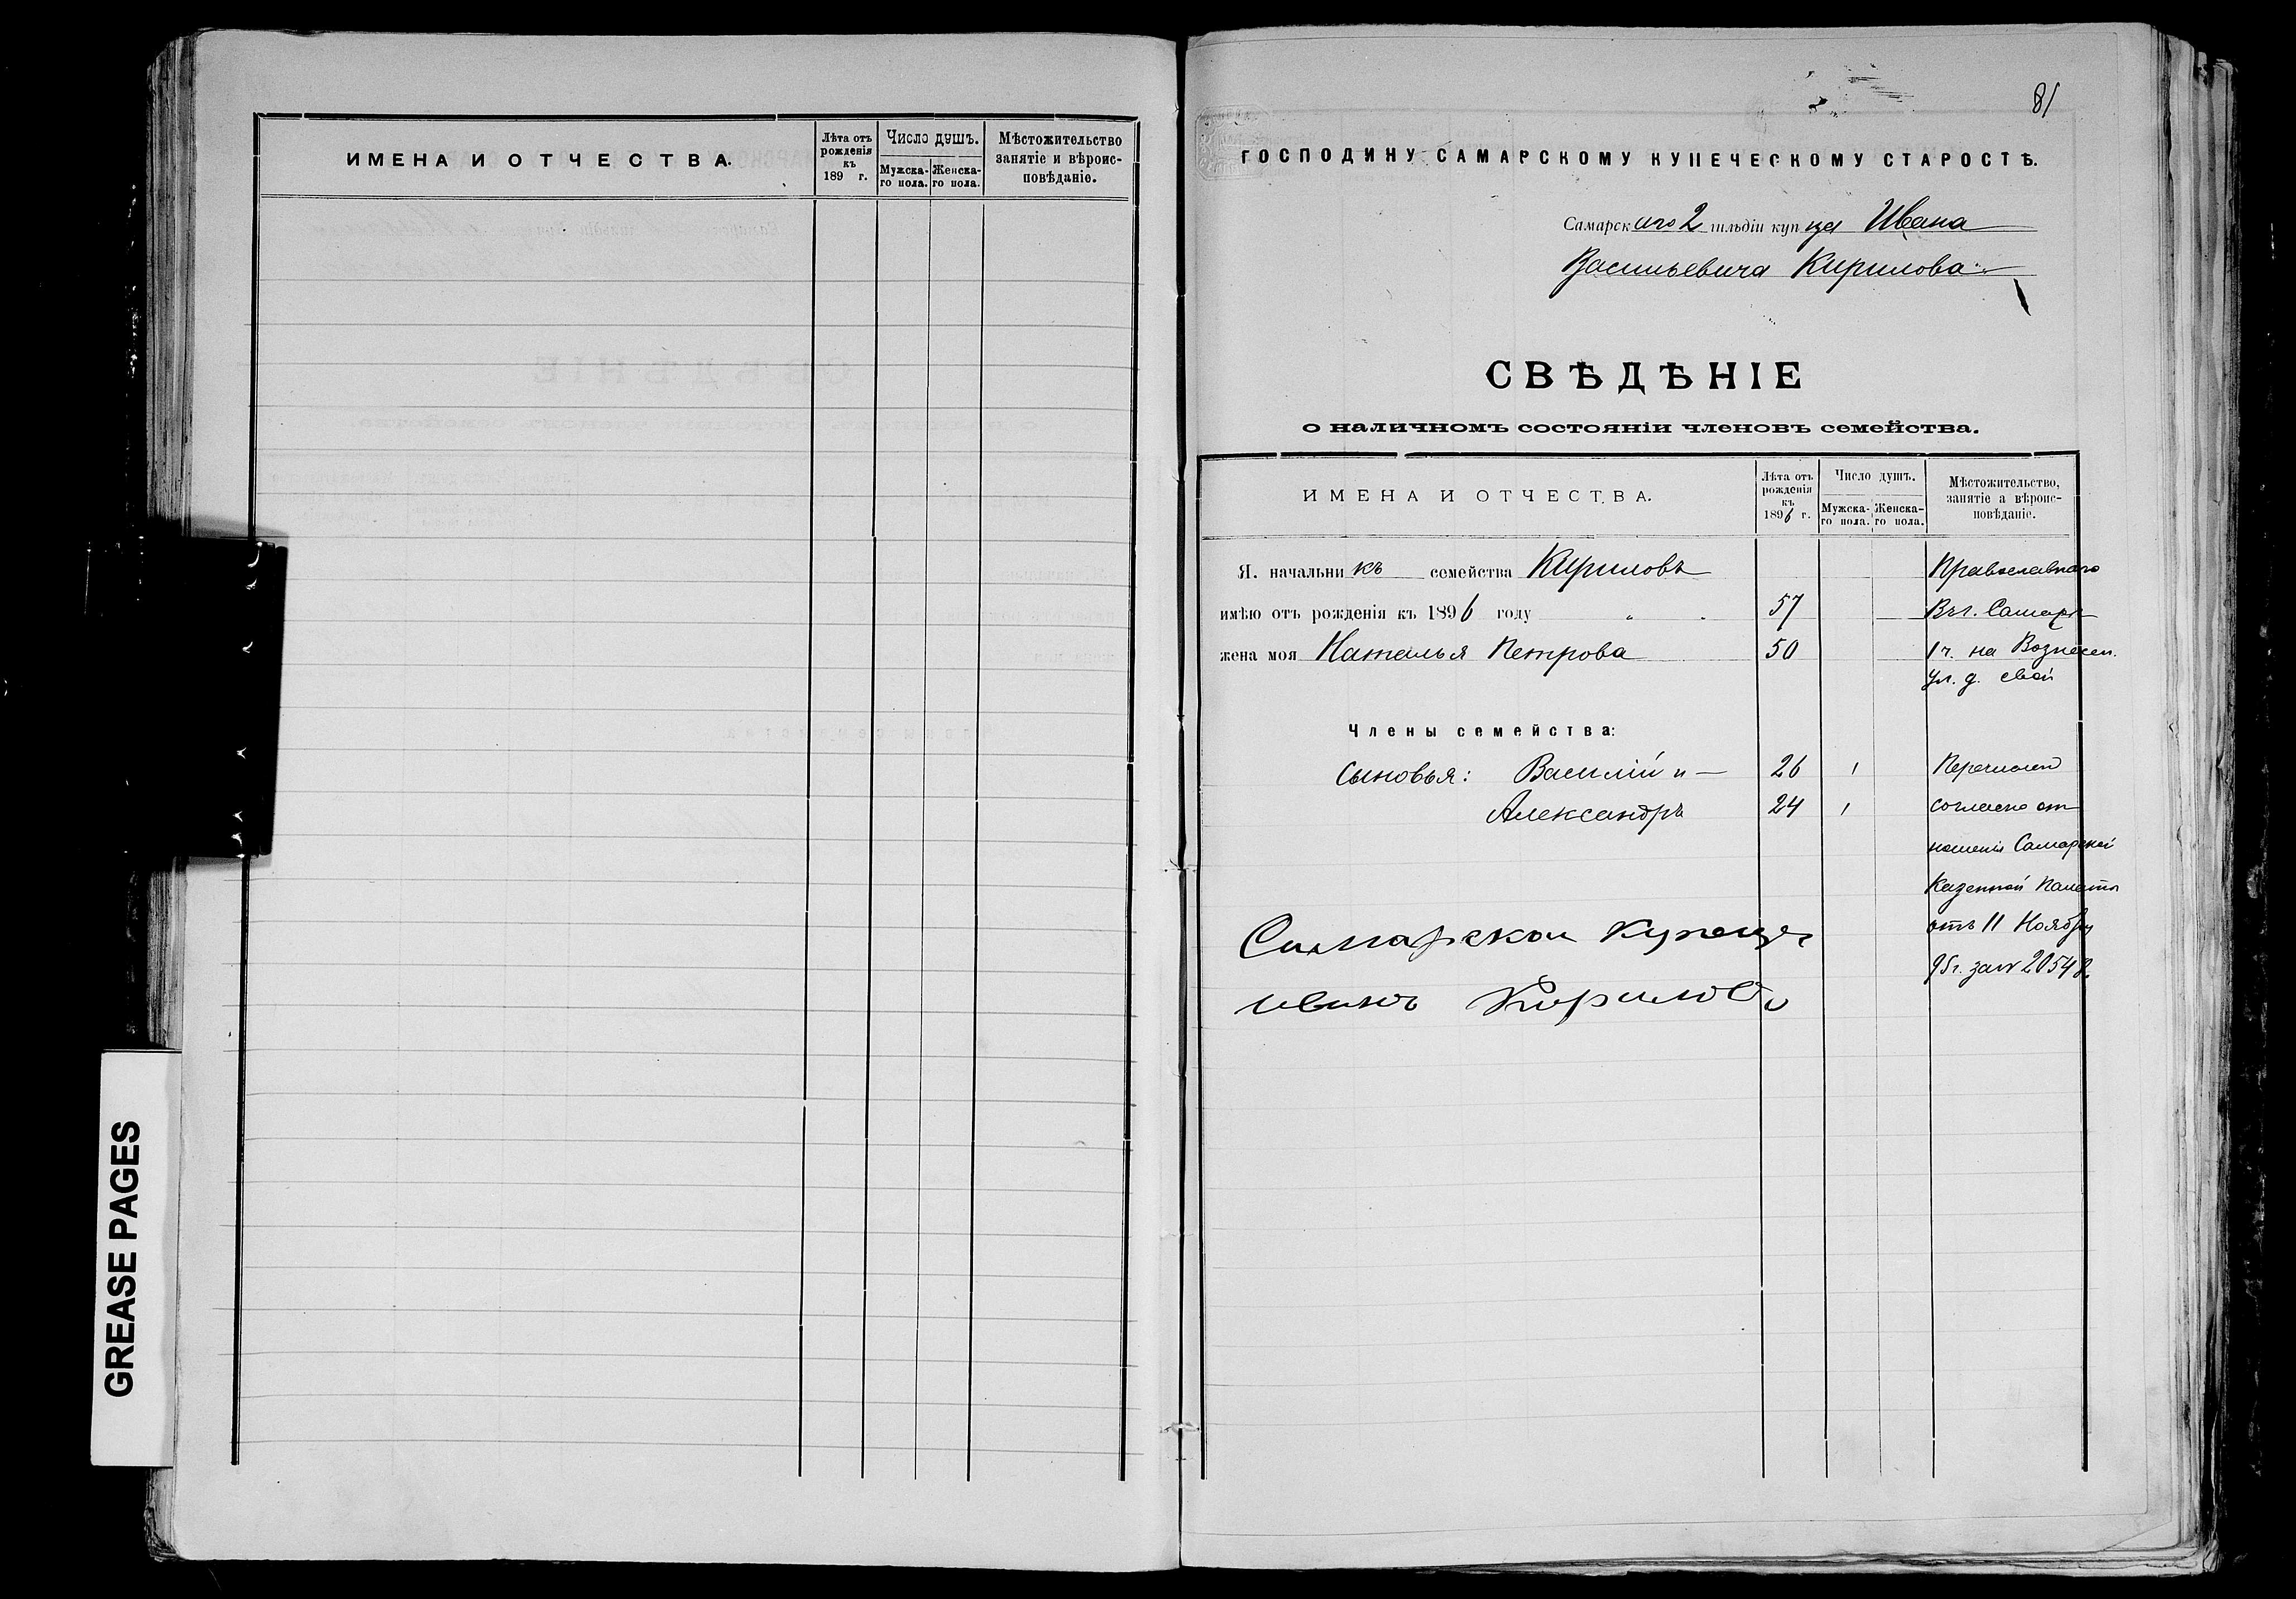 ИМЕНА И ОТЧЕСТВА.
Лѣта отъ рожденія къ 189 г.
Число душъ.
Мужска-го пола.
Женска-го пола.
Мѣстожительство занятіе и вѣроис-повѣданіе.
GREASE PAGES
81
ГОСПОДИНУ САМАРСКОМУ КУПЕЧЕСКОМУ СТАРОСТѢ.
Самарскаго 2 гильдіи купца Ивана
Васильевича Кирилова
СВѢДѢНІЕ
о наличномъ состояніи членовъ семейства.
ИМЕНА И ОТЧЕСТВА.
Лѣта отъ рожденія къ 1896 г.
Число душъ.
Мужска-го пола.
Женска-го пола.
Мѣстожительство, занятіе а вѣроис-повѣданіе.
Я. начальникъ семейства Кириловъ Православнаго
имѣю отъ рожденія къ 1896 году „ . 57 Въ г. Самарѣ
жена моя Наталья Петрова 50 1 ч. на Вознесен.
ул. д. свой
Члены семейства:
Сыновья: Василій и — 26 1
Александръ 24 1 согласно от
ношенія Самарской
Казенной Палаты
отъ 11 Ноября
95 г. за № 20548
Самарскои Купецъ
иванъ Кириловъ